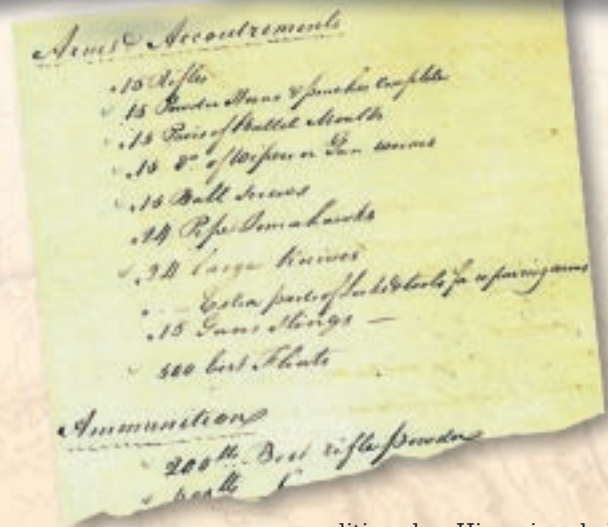 Arms & Accoutrements
15 Rifles
15 Powder Horns & pouches complete
15 Pairs of Bullet Moulds
15 do of Wipers or Gun worms
15 Ball Screws
24 Pipe Tomahawks
24 large knives
Extra parts of locks & tools for repairing arms
15 Guns Slings
500 best Flints
Ammunition
200 lb Best rifle powder